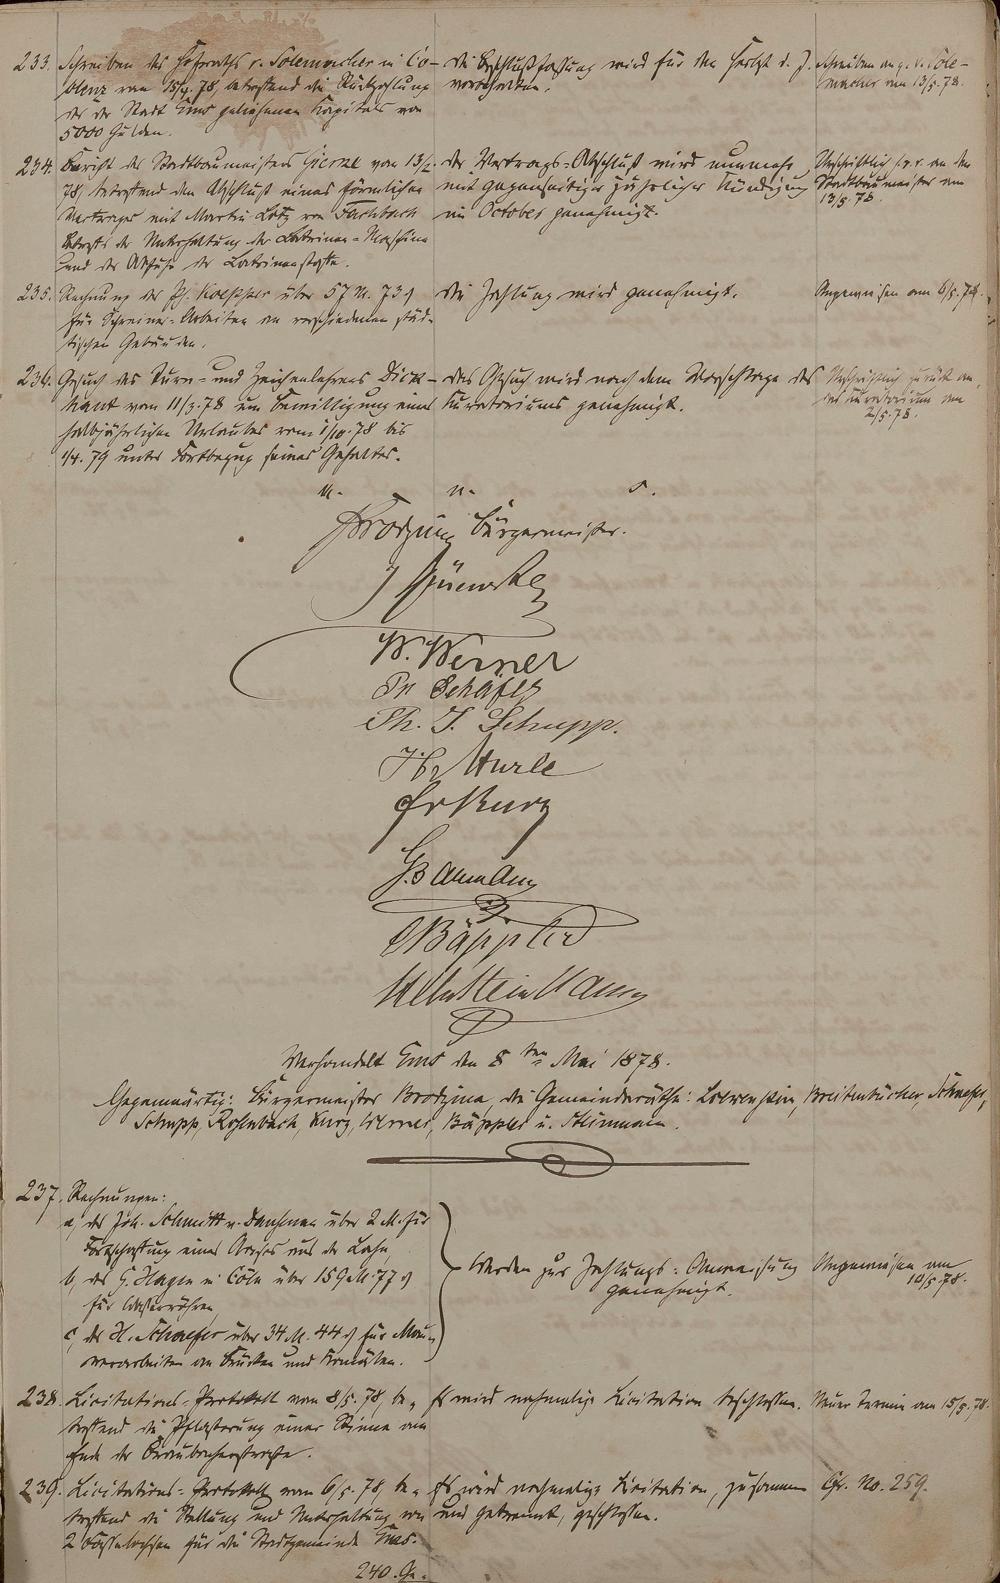 233. Schreiben des Hofraths v. Solemacher in Co-
blenz vom 15/4. 78, betreffend die Rückzahlung
der der Stadt Ems geliehenen Kapitals von
5000 Gulden.
Die Beschlußfassung wird für den Herbst d. J.
vorbehalten.
Schreiben an g. v. Sole-
macher am 13/5. 78.
234. Bericht des Stadtbaumeisters vom 13/5.
78, betreffend den Abschluß eines förmlichen
Vertrages mit Martin Lotz von Fachbach
betreffs der Unterhaltung der Latrinen-Maschine
und der Abfuhr der Latrinenstoffe.
Der Vertrags-Abschluß wird nunmehr
mit gegenseitiger jährlicher Kündigung
im October genehmigt.
Urschriftlich s. p. r. an den
Stadtbaumeister am
13/5. 78.
235. Rechnung des Ph. über 57 M. 73 ₰
für Schreiner-Arbeiten an verschiedenen städ-
tischen Gebäuden.
Die Zahlung wird genehmigt.
Angewiesen am 6/5. 78.
236. Gesuch des Turn- und Zeichenlehrers Dick-
haut vom 11/3. 78 um Bewilligung eines
halbjährlichen Urlaubes vom 1/10. 78 bis
1/4. 79 unter Fortbezug seines Gehaltes.
Das Gesuch wird nach dem Vorschlage des
Kuratoriums genehmigt.
Urschriftlich zurück an
das Curatorium am
2/5. 78.
u. n. s.
Brodzina Bürgermeister.
W. Werner
Schäfer
Th. J. Schupp.
Fr Kurz
Bäppler
Verhandelt Ems den 8ten Mai 1878.
Gegenwärtig: Bürgermeister Brodzina, die Gemeinderäthe: Loewenstein, Breitenbücher, Schaefer,
Schupp, Rosenbach, Kurz, Werner, Bäppler u. Heinmann.
237. Rechnungen:
a, des Joh. Schmitt v. Dausenau über 2 M. für
Fortschaffung eines aus der Lahn,
b, des G. Hagen in Cöln über 159 M. 77 ₰
für Wasserröhren
c, des H. Schaefer über 34 M. 44 ₰ für Mau-
rerarbeiten an Brücken und Kanälen.
Werden zur Zahlungs-Anweisung
genehmigt.
Angewiesen am
10/5. 78.
238. Licitations-Protokoll vom 8/5. 78, be-
treffend die Pflasterung einer Rinne am
Ende der Braubacherstraße.
Es wird nochmalige Licitation beschlossen.
Neuer Termin am 15/5. 78.
239. Licitations-Protokoll vom 6/5. 78, be-
treffend die Stellung und Unterhaltung von
2 Faselochsen für die Stadtgemeinde Ems.
Es wird nochmalige Licitation, zusammen
und getrennt, beschlossen.
Cfr. No. 259.
240. Ge-